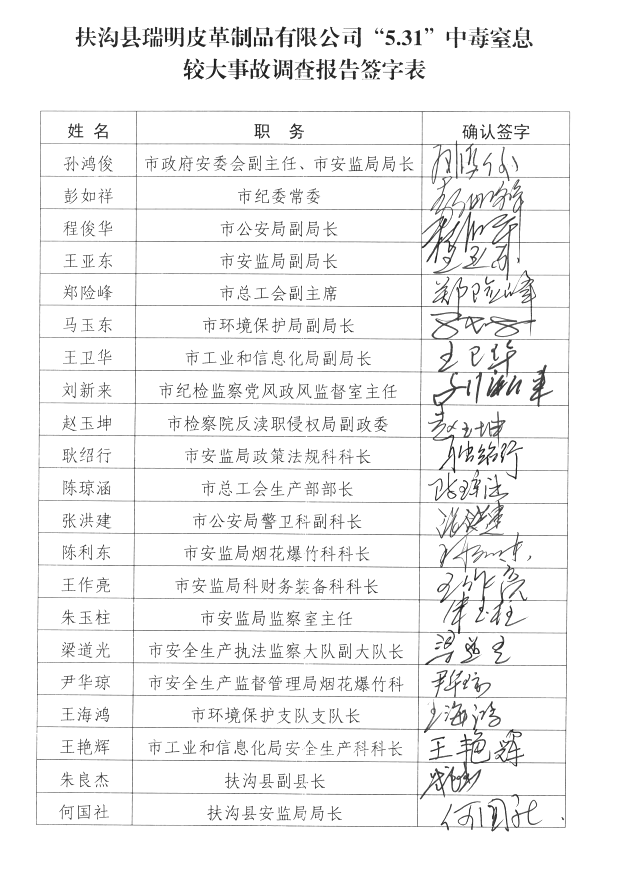 扶沟县瑞明皮革制品有限公司“5.31”中毒窒息
较大事故调查报告签字表
姓 名 职 务 确认签字
孙鸿俊 市政府安委会副主任、市安监局局长
彭如祥 市纪委常委
程俊华 市公安局副局长
王亚东 市安监局副局长 王亚东
郑险峰 市总工会副主席 郑险峰
马玉东 市环境保护局副局长
王卫华 市工业和信息化局副局长 王卫华
刘新来 市纪检监察党风政风监督室主任
赵玉坤 市检察院反渎职侵权局副政委 赵玉坤
耿绍行 市安监局政策法规科科长 耿绍行
陈琼涵 市总工会生产部部长
张洪建 市公安局警卫科副科长
陈利东 市安监局烟花爆竹科科长
王作亮 市安监局科财务装备科科长 王作亮
朱玉柱 市安监局监察室主任 朱玉柱
梁道光 市安全生产执法监察大队副大队长
尹华琼 市安全生产监督管理局烟花爆竹科 尹华琼
王海鸿 市环境保护支队支队长 王海鸿
王艳辉 市工业和信息化局安全生产科科长 王艳辉
朱良杰 扶沟县副县长
何国社 扶沟县安监局局长 何国社